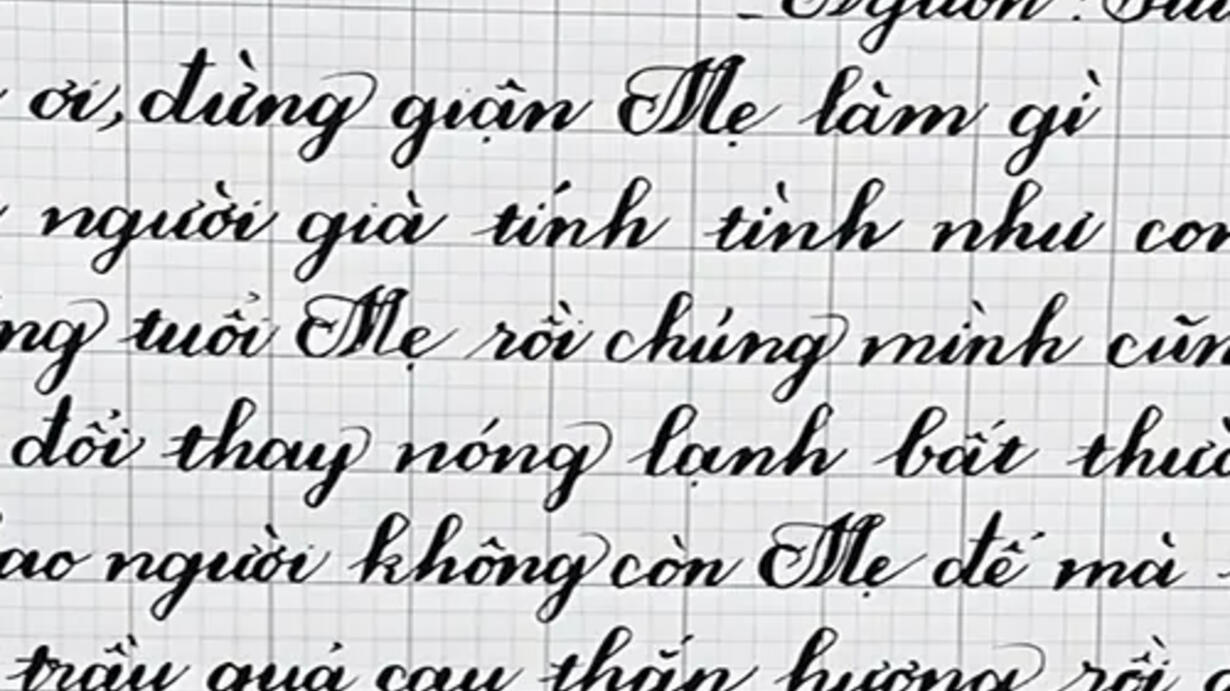 - Nguồn :
ơi, đừng giận Mẹ làm gì
người già tính tình như con
ng tuổi Mẹ rồi chúng mình cũn
đổi thay nóng lạnh bất thườ
ao người không còn Mẹ để mà
trầu quả cau thắp hương rồi